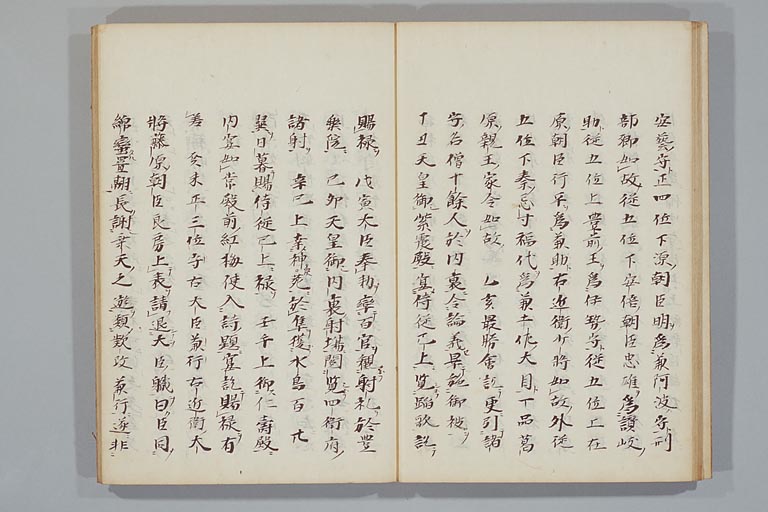 安藝守正四位下源朝臣明爲兼阿波守刑
部卿如故從五位下安倍朝臣忠雄爲讃岐
助從五位上豊前王爲伊勢守從五位上在
原朝臣行平爲兼助右近衛少將如故外從
五位下秦忌寸福代爲兼木作大目丁品葛
原親王家令如故 乙亥最勝會訖更引諸
守名僧十餘人於內裏令論義畢施御被
丁丑天皇御紫震殿宴侍從已上覧踏歌訖
賜祿 戊寅大臣奉勅率百官觀射礼於豊
樂院 己卯天皇御內裏射場閣覧四衛府
諸射 辛巳上幸神泉苑放隼獲水鳥百 廿
巽日暮賜侍從已上祿 壬午上御仁壽殿
內宴如常殿前紅梅便入詩題宴訖賜祿有
差 癸未正三位守右大臣兼行右近衛大
將藤原朝臣良房上表請退大臣職曰臣同
綿蠻置翮長謝辛天之遊類數改兼行遂非